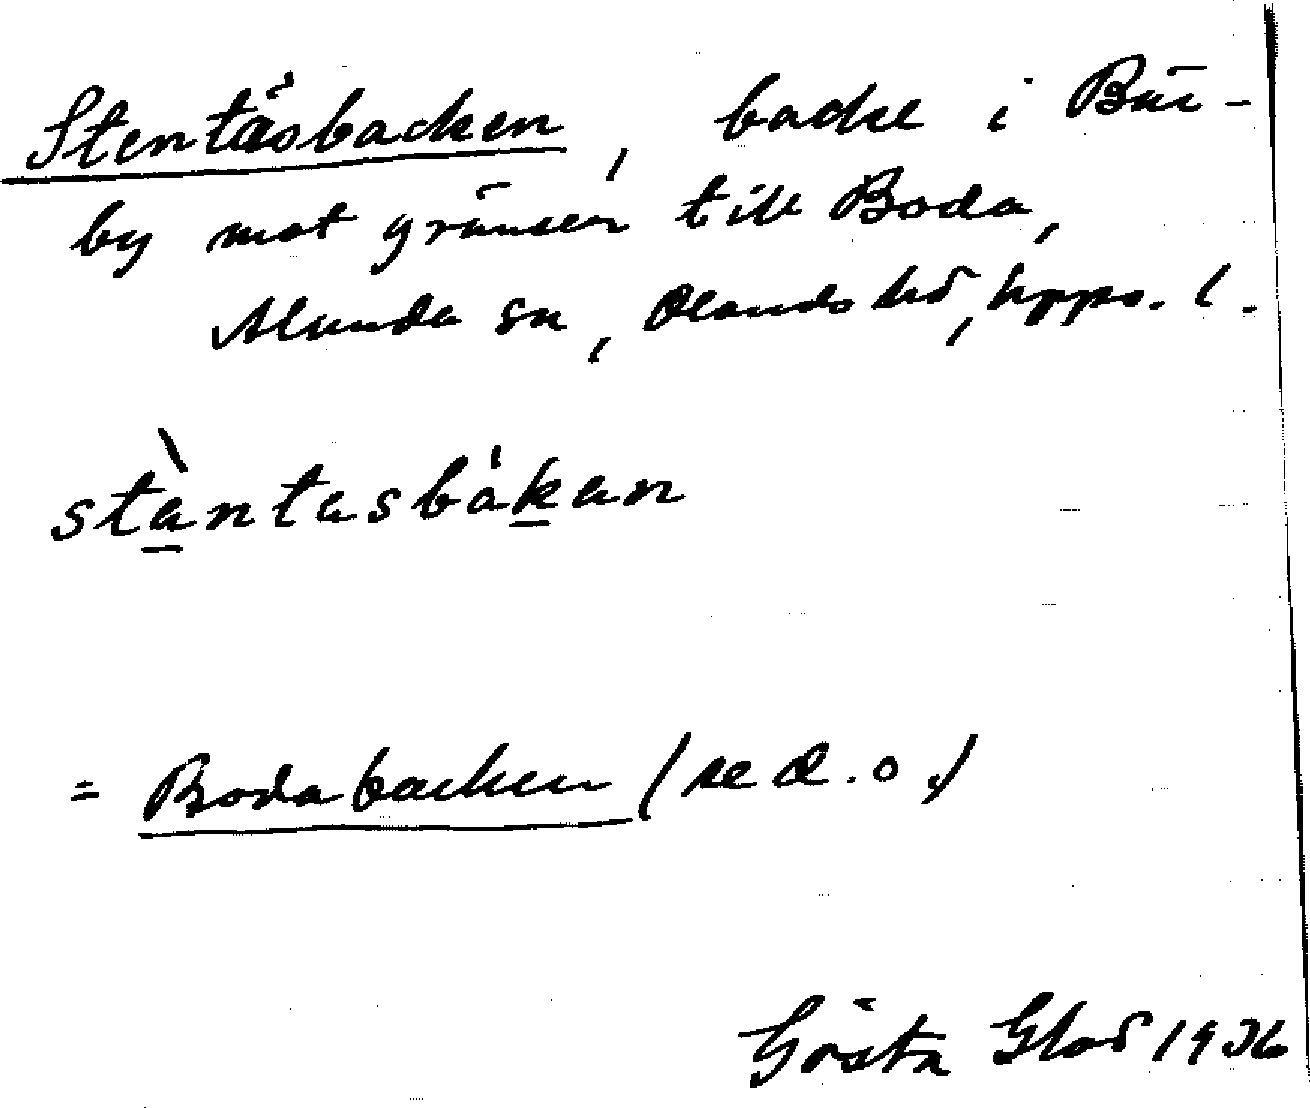 Stentåsbacken, backe i Bäl-
by mot gränsen till Boda,
Alunda sn, Olands hd, Upps. l.
stàntasbákan
= Bodabacken (se d. o.)
Gösta Glad 1936